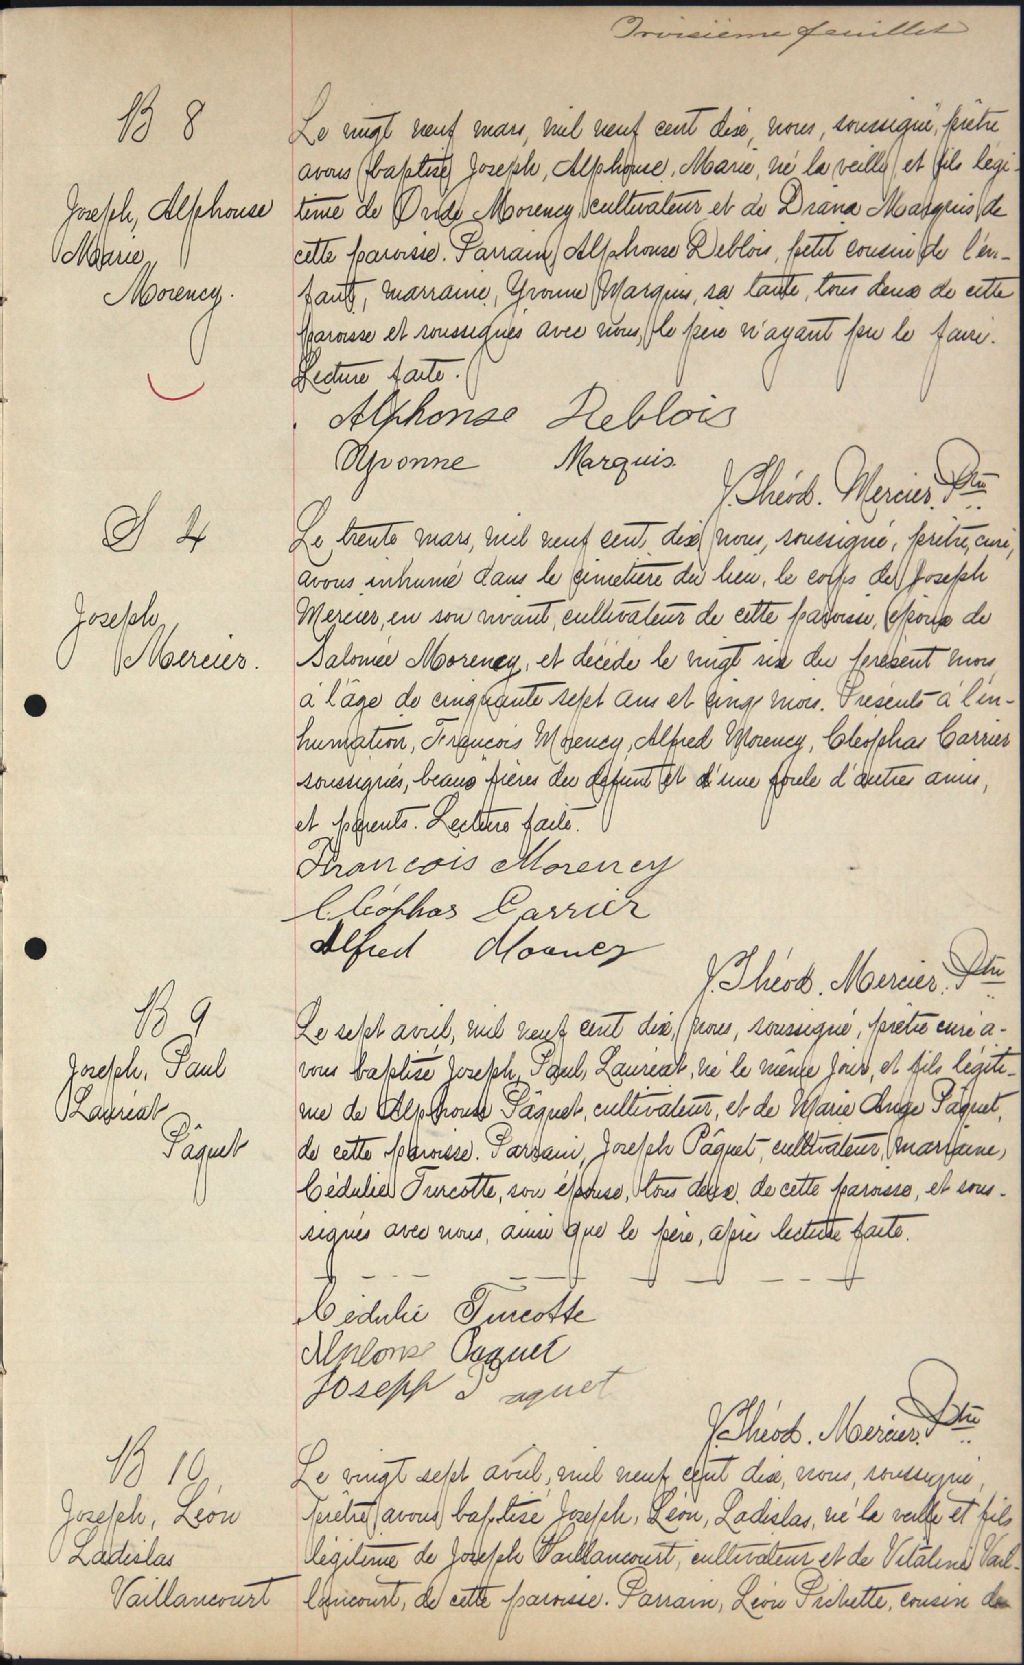 Troisième feuillet
B 8
Joseph, Alphonse
Marie
Morency.
Le vingt neuf mars, mil neuf cent dix, nous, soussigné, prêtre
avons baptisé Joseph, Alphonse, Marie, né la veille et fils légi-
time de Onds Morency cultivateur et de Diana Marquis de
cette paroisse. Parrain, Alphonse Deblois, petit cousin de l'en-
fant, marraine, Yvonne Marquis, sa tante, tous deux de cette
paroisse et soussignés avec nous, le père n'ayant pu le faire.
Lecture faite.
Alphonse Deblois
Yvonne Marquis
J. Théod. Mercier. Ptre
S 4
Joseph
Mercier.
Le trente mars, mil neuf cent dix, nous, soussigné, prêtre, curé,
avons inhumé dans le cimetière du lieu, le corps de Joseph
Mercier, en son vivant, cultivateur de cette paroisse, époux de
Salomée Morency, et décédé le vingt six du présent mois
à l'âge de cinquante sept ans et cinq mois. Présents à l'in-
humation, François Morency, Alfred Morency, Cléophas Carrier
soussignés, beaux frères du défunt et d'une foule d'autres amis,
et parents. Lecture faite.
Francois Morency
Cléophas Carrier
Alfred
J. Théod. Mercier. Ptre
B 9
Joseph, Paul
Lauréat
Pâquet
Le sept avril, mil neuf cent dix, nous, soussigné, prêtre curé a-
vons baptisé Joseph, Paul, Lauréat, né le même jour, et fils légiti-
me de Alphonse Pâquet, cultivateur, et de Marie Ange Pâquet,
de cette paroisse. Parrain, Joseph Pâquet, cultivateur, marraine,
Cédulie Turcotte, son épouse, tous deux, de cette paroisse, et sous-
signés avec nous, ainsi que le père, après lecture faite.
Cédulie Turcotte
Alphonse Paquet
Joseph Paquet
J. Théod. Mercier. Ptre
B 10
Joseph, Léon
Ladislas
Vaillancourt
Le vingt sept avril, mil neuf cent dix, nous, soussigné,
prêtre, avons baptisé Joseph, Léon, Ladislas, né la veille et fils
légitime de Joseph Vaillancourt, cultivateur et de Vitaline Vail-
lancourt, de cette paroisse. Parrain, Léon Pichette, cousin de